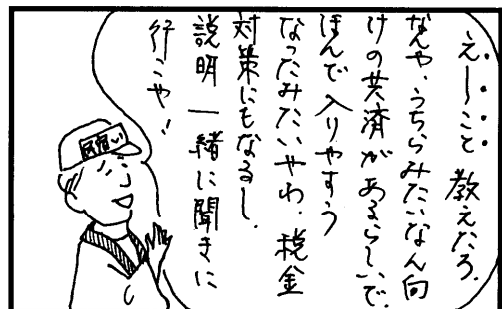 え〜こと 教えたろ.
なんや、うちらみたいなん向
けの共済があるらしいで.
ほんで 入りやすう
なったみたいやわ. 税金
対策にもなるし.
説明 一緒に聞きに
行こや!